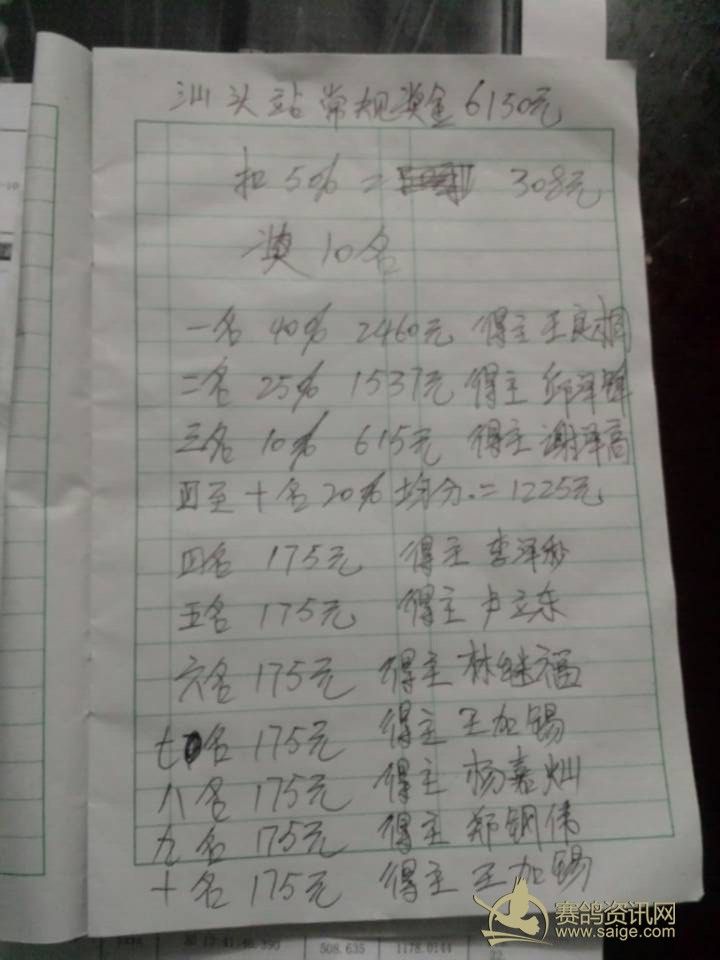 汕头站常规奖金6150元
扣5% = 308元
奖10名
一名 40% 2460元 得主王良桐
二名 25% 1537元 得主邱泽锋
三名 10% 615元 得主谢泽高
四至十名20%均分.=1225元
四名 175元 得主李泽
五名 175元 得主卢立东
六名 175元 得主林继福
七名 175元 得主王加锡
八名 175元 得主杨嘉灿
九名 175元 得主郑钢伟
十名 175元 得主王加锡
赛鸽资讯网
www.saige.com
508.635 1178.0144